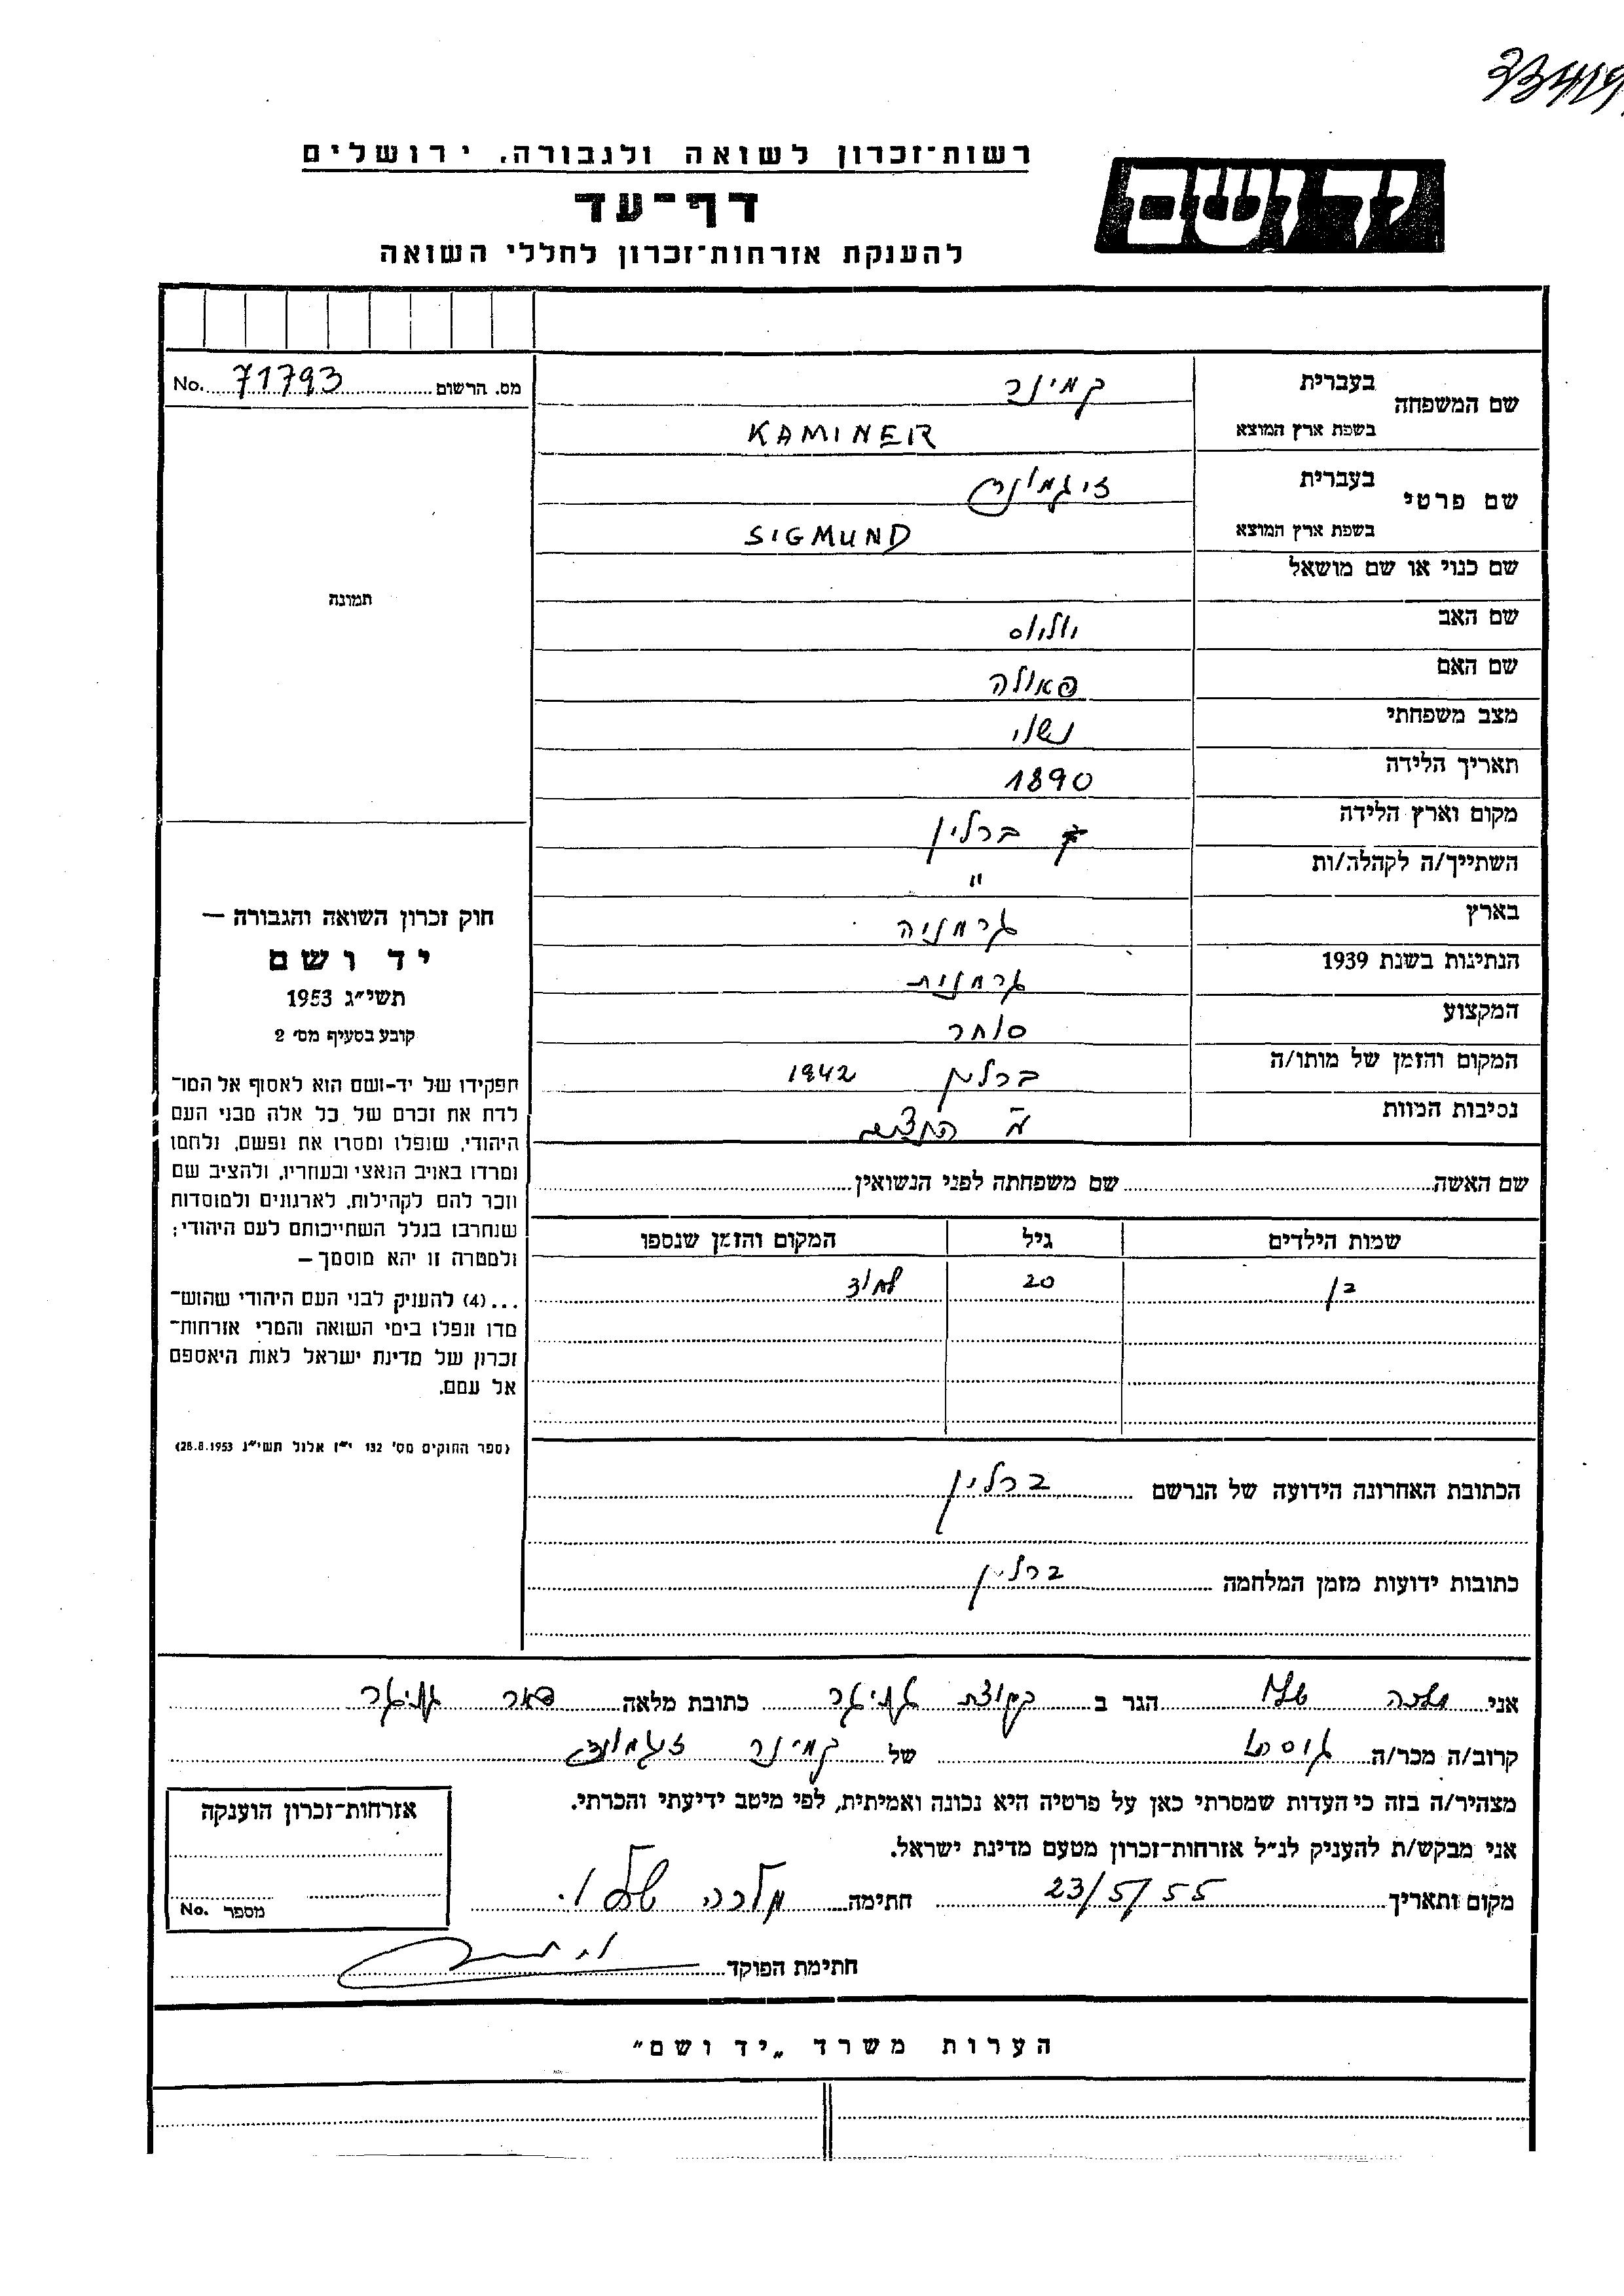 רשות־זכרון לשואה ולגבורה, ירושלים
יד ושם
דף־עד
להענקת אזרחות־זכרון לחללי השואה
מס. הרשום 71793 No.
שם המשפחה בעברית קמינר
בשפת ארץ המוצא KAMINER
שם פרטי בעברית זיגמונד
בשפת ארץ המוצא SIGMUND
שם כנוי או שם מושאל
שם האב יוליוס
שם האם פאולה
מצב משפחתי נשוי
תאריך הלידה 1890
מקום וארץ הלידה ברלין
השתייך/ה לקהלה/ות "
בארץ גרמניה
הנתינות בשנת 1939 גרמנית
המקצוע סוחר
המקום והזמן של מותו/ה ברלין 1942
נסיבות המוות
שם האשה שם משפחתה לפני הנשואין
שמות הילדים גיל המקום והזמן שנספו
בן 20
הכתובת האחרונה הידועה של הנרשם ברלין
כתובות ידועות מזמן המלחמה ברלין
תמונה
חוק זכרון השואה והגבורה —
יד ושם
תשי"ג 1953
קובע בסעיף מס' 2
תפקידו של יד-ושם הוא לאסוף אל המו־
לדת את זכרם של כל אלה מבני העם
היהודי, שנפלו ומסרו את נפשם, נלחמו
ומרדו באויב הנאצי ובעוזריו, ולהציב שם
וזכר להם לקהילות, לארגונים ולמוסדות
שנחרבו בגלל השתייכותם לעם היהודי;
ולמטרה זו יהא מוסמך —
...(4) להעניק לבני העם היהודי שהוש־
מדו ונפלו בימי השואה והמרי אזרחות־
זכרון של מדינת ישראל לאות היאספם
אל עמם.
(ספר החוקים מס' 132 י"ז אלול תשי"ג 28.8.1953)
אני מלכה הגר ב קבוצת כתובת מלאה
קרוב/ה מכר/ה של קמינר זיגמונד
מצהיר/ה בזה כי העדות שמסרתי כאן על פרטיה היא נכונה ואמיתית, לפי מיטב ידיעתי והכרתי.
אני מבקש/ת להעניק לנ"ל אזרחות־זכרון מטעם מדינת ישראל.
מקום ותאריך 23/5/55 חתימה מלכה
חתימת הפוקד
אזרחות־זכרון הוענקה
מספר No.
הערות משרד „יד ושם"